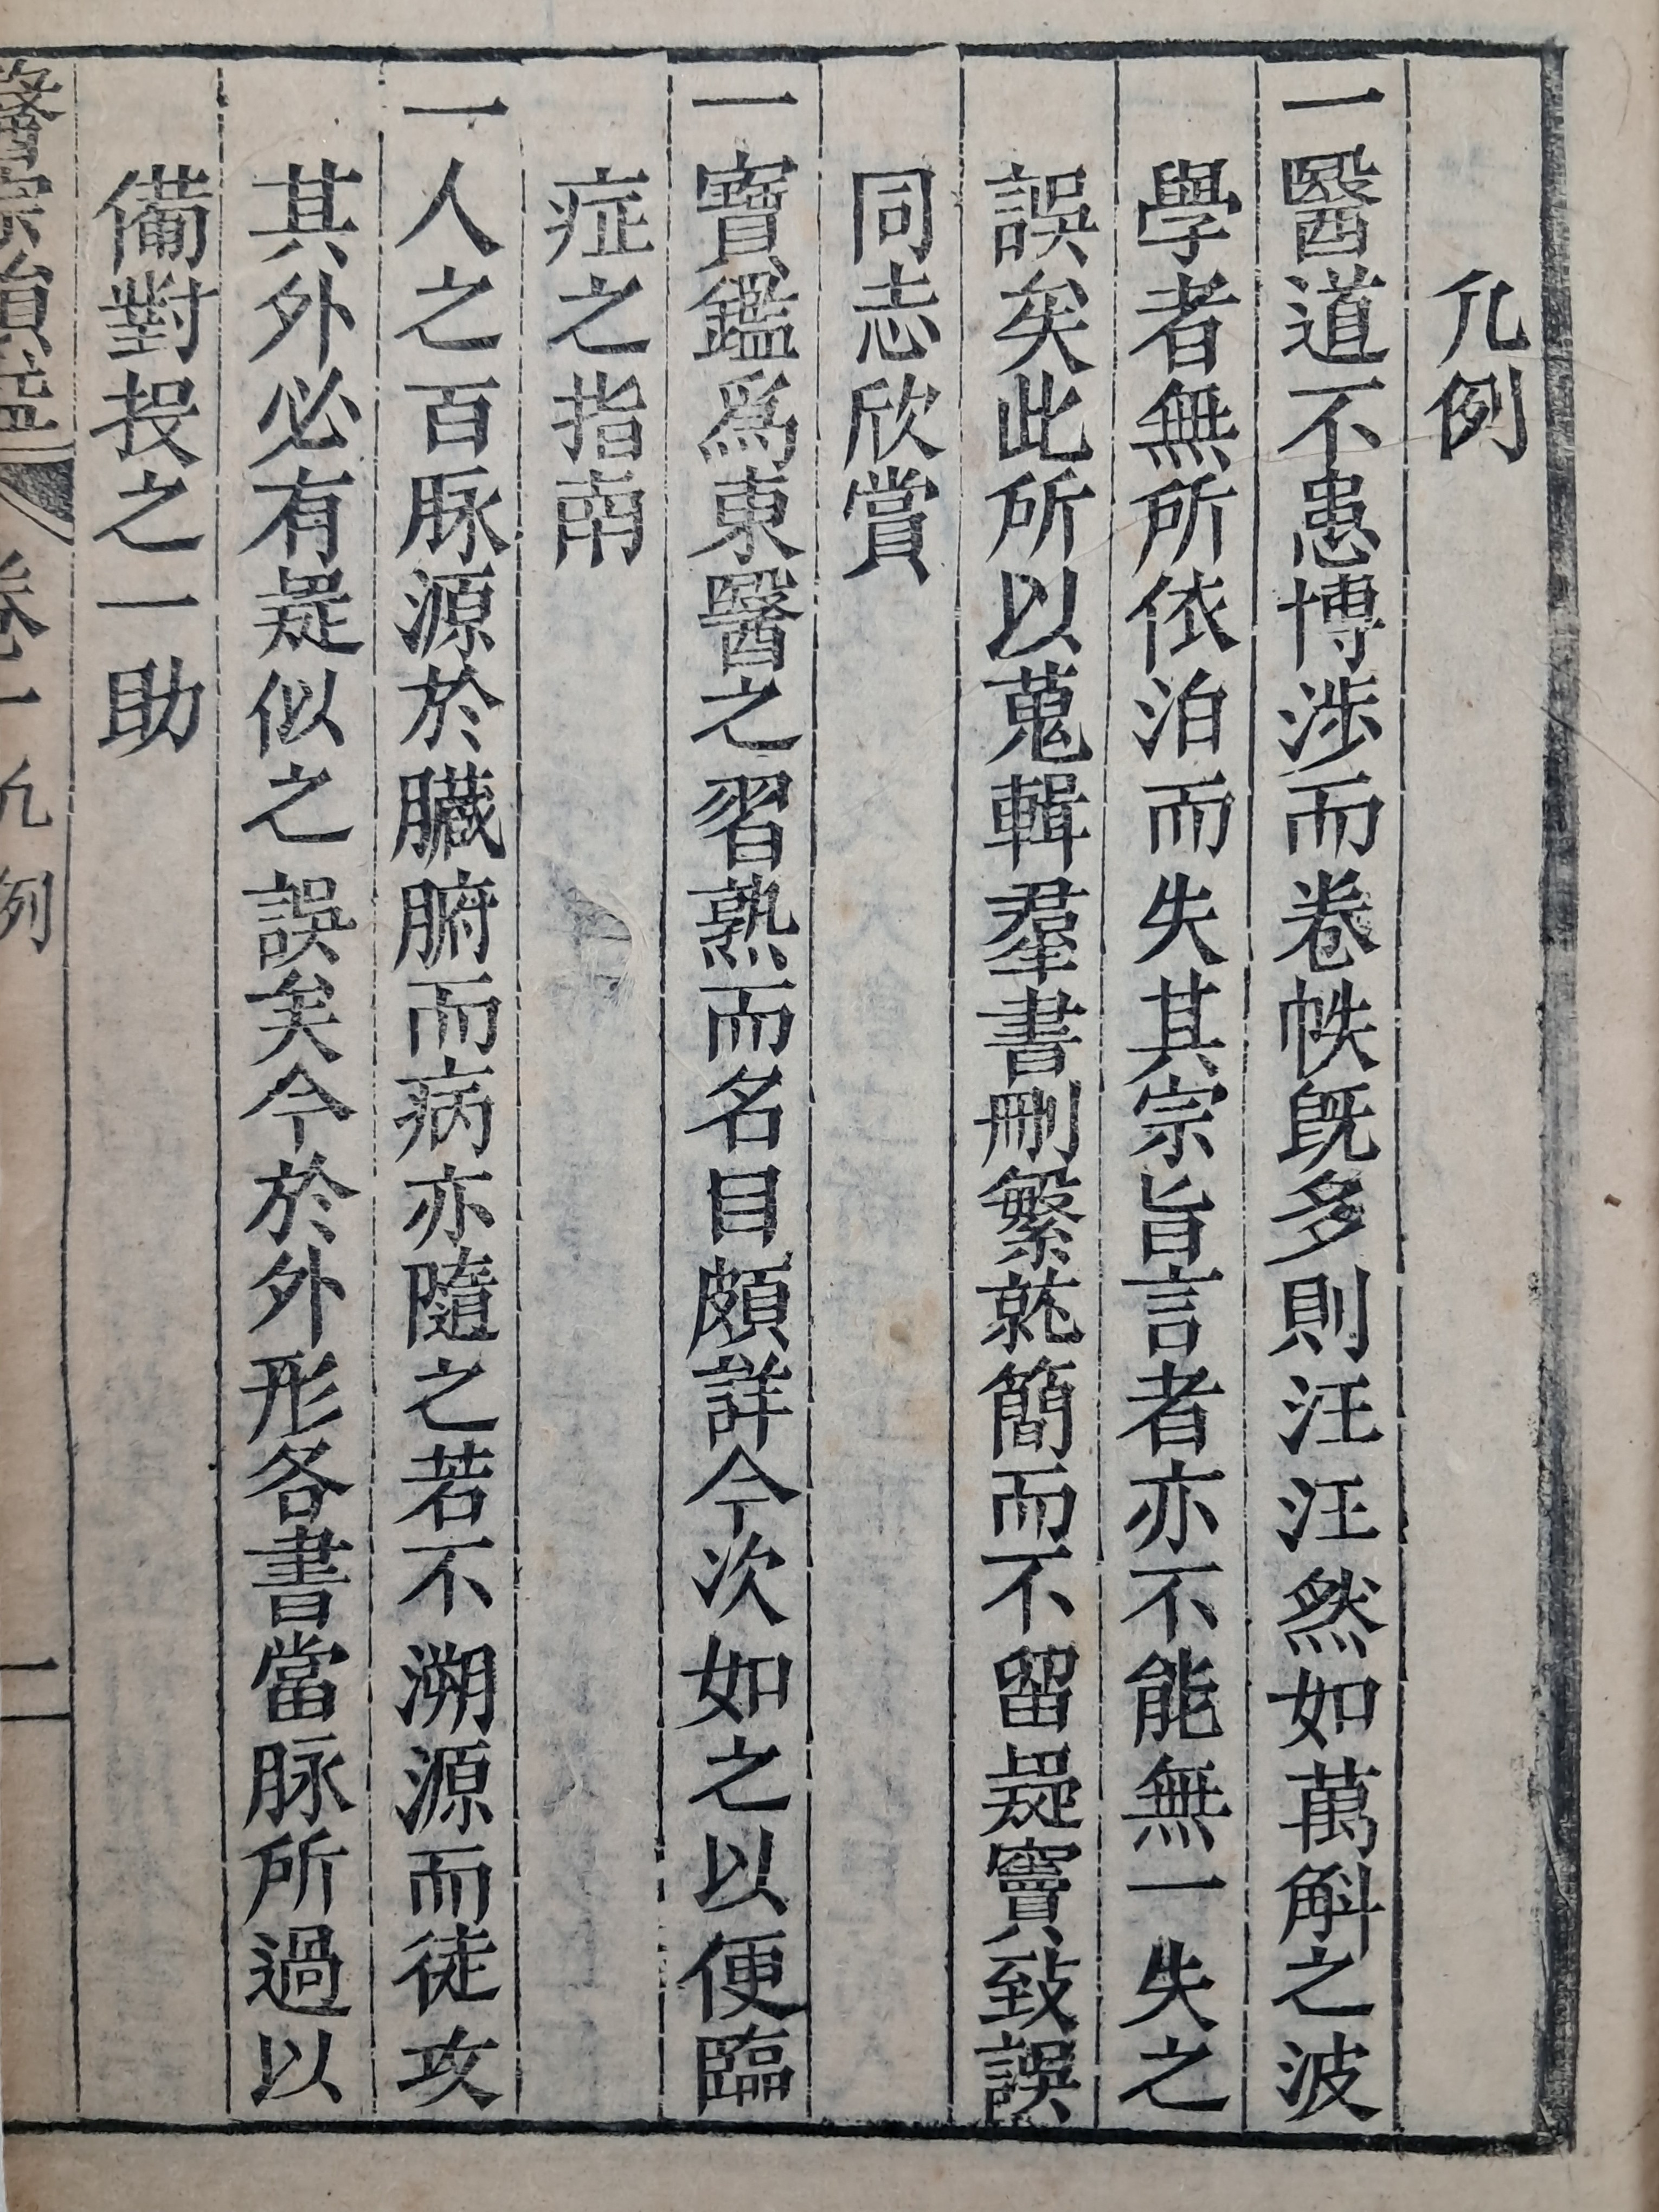 凢例
一毉道不患博涉而卷帙旣多則汪汪然如萬斛之波
學者無所依泊而失其宗旨言者亦不能無一失之
誤矣此所以蒐輯羣書刪繁就簡而不留疑竇致誤
同志欣賞
一寶鑑爲東醫之習熟而名目頗詳今次如之以便臨
症之指南
一人之百脉源於臟腑而病亦隨之若不溯源而徒攻
其外必有疑似之誤矣今於外形各書當脉所過以
備對投之一助
醫宗損益 卷一 凢例 二